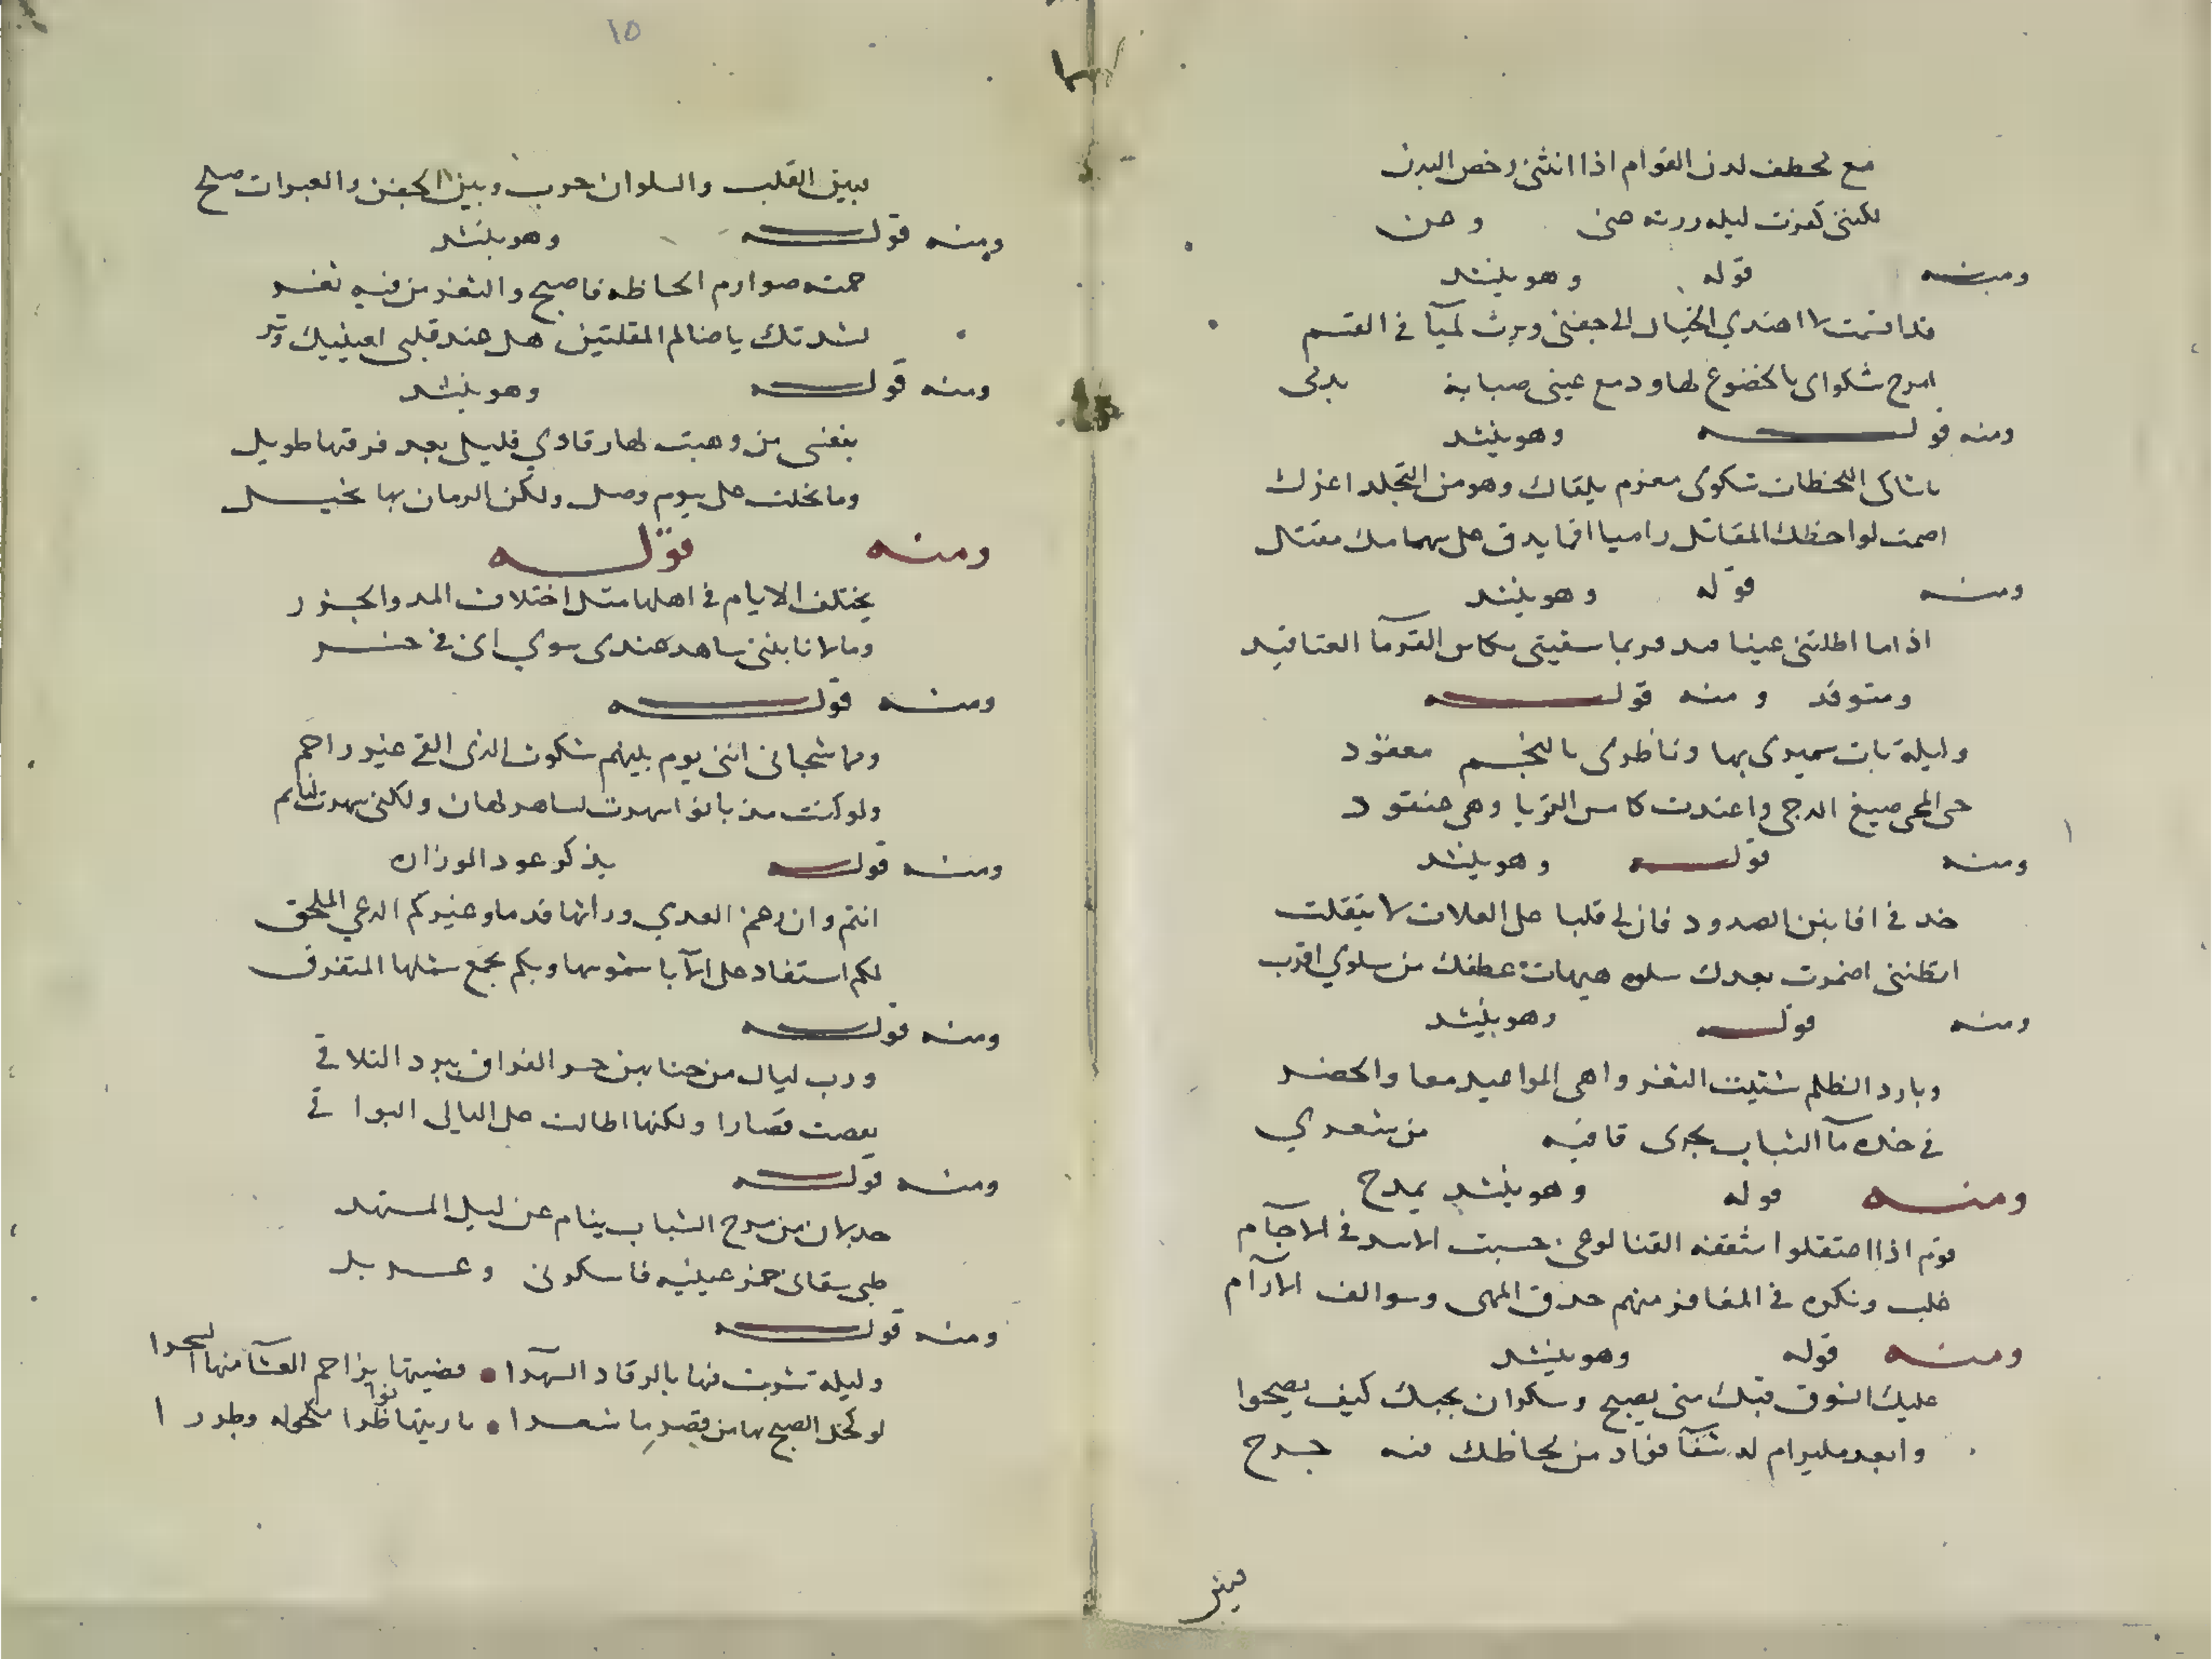 مع مخطف لدن القوام اذا انثنى رخص البدن
لكننى كفرت ليله زرته عنى وعن
ومنه قوله وهو ينشد
قد اقسمت لا اهتدي الخيال الى جفنى وبرت لميآ في القسم
امزج شكواى بالخضوع لها ودمع عينى صبابة بدمى
ومنه قوله وهو ينشد
ياشاكى اللحظات شكوى مغرم يلقاك وهو من التجلد اعزل
اصمت لواحظك المقاتل راميا افما يدق على سهامك مقتل
ومنه قوله وهو ينشد
اذا ما اطلتنى عينا
ومتوقد ومنه قوله
وليلة بات سميرى بها وناظرى بالنجم معقود
حتى امحى صبغ الدجى واغتدت كاس الثريا وهى عنقود
ومنه قوله وهو ينشد
خذ في افانين الصدود فان لى قلبا على العلات لا يتقلب
اتظننى اضمرت بعدك سلوه هيهات عطفك من سلوي اقرب
ومنه قوله وهو ينشد
وبارد الظلم شتيت الثغر واهى المواعيد معا والخصر
في خده مآ الشباب يجرى قافيه من شعري
ومنه قوله وهو ينشد يمدح
قوم اذا اعتقلوا مثقفه القنا لوغى حسبت الاسد في الآجام
غلب وتكره في المغافر منهم حدق المهى وسوالف الآرآم
ومنه قوله وهو ينشد
عليك الشوق فيك متى يصح وسكران بحبك كيف يصحوا
وابعد مايرام له شفآ فؤاد من لحاظك فيه جرح
فبين
١٥
فبين القلب والسلوان حرب وبين الجفن والعبرات صلح
ومنه قوله وهو ينشد
حمته صوارم الحاظه فاصبح والثغر من فيه ثغر
نشدتك ياضالم المقلتين هل عند قلبى لعينيك وتر
ومنه قوله وهو ينشد
بنفسى من وهبت لها رقادي فليلى بعد فرقتها طويل
وما بخلت على بيوم وصل ولكن الزمان بها بخيل
ومنه قوله
يختلف الايام في اهلها مثل اختلاف المد والجزر
وما لانا بتنى ساهد عندى سوي انى في خسر
ومنه قوله
ومما شجانى اننى يوم بينهم شكوت الذى القى غير راحم
ولو كنت مذ بانوا سهرت لساهر لهان ولكنى سهرت لنايم
ومنه قوله يذكر عود الوزاره
انتم وان رغم العدي وراثها قدما وغيركم الدعي الملحق
لكم استقاد على الآبا شموسها وبكم تجمع شملها المتفرق
ومنه قوله
ورب ليال منحنا بهن حر الفراق ببرد التلاقى
تقصت قصارا ولكنها اطالت على الليالى البواقى
ومنه قوله
جذلان من مرح الشباب ينام عن ليل المسهد
ظبى سقانى خمر عينيه فاسكرنى وعربد
ومنه قوله
وليلة شربت فيها بالرقاد السهدا • قضيتها يزاحم العشآ منها السحرا
لو كحل الصبح بها من قصر ما شعرا • ياريتها